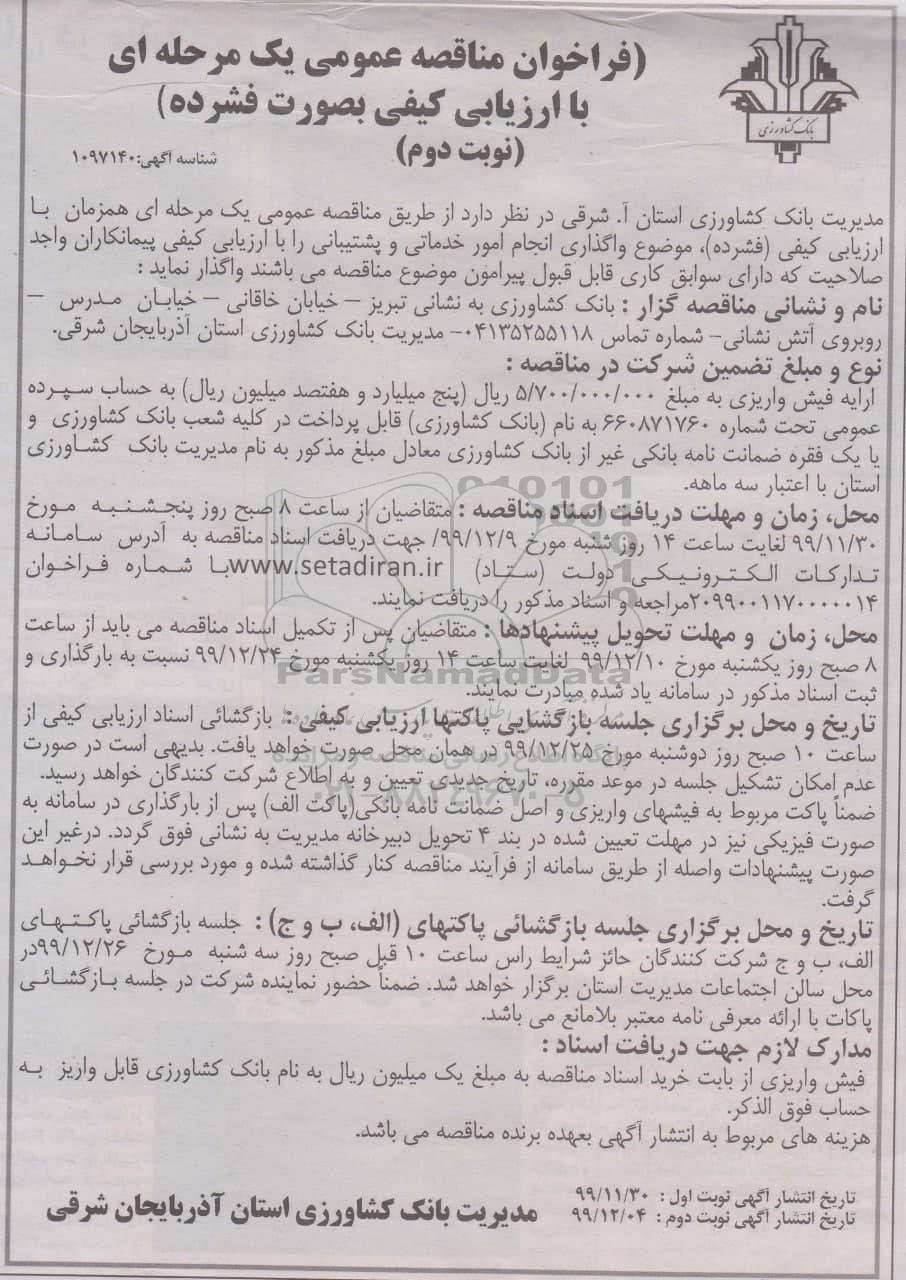 (فراخوان مناقصه عمومی یک مرحله ای
با ارزیابی کیفی بصورت فشرده)
(نوبت دوم)
شناسه آگهی: ۱۰۹۷۱۴۰
بانک کشاورزی
مدیریت بانک کشاورزی استان آ. شرقی در نظر دارد از طریق مناقصه عمومی یک مرحله ای همزمان با
ارزیابی کیفی (فشرده)، موضوع واگذاری انجام امور خدماتی و پشتیبانی را با ارزیابی کیفی پیمانکاران واجد
صلاحیت که دارای سوابق کاری قابل قبول پیرامون موضوع مناقصه می باشند واگذار نماید :
نام و نشانی مناقصه گزار : بانک کشاورزی به نشانی تبریز – خیابان خاقانی – خیابان مدرس –
روبروی آتش نشانی- شماره تماس ۰۴۱۳۵۲۵۵۱۱۸- مدیریت بانک کشاورزی استان آذربایجان شرقی.
نوع و مبلغ تضمین شرکت در مناقصه :
ارایه فیش واریزی به مبلغ ۵/۷۰۰/۰۰۰/۰۰۰ ریال (پنج میلیارد و هفتصد میلیون ریال) به حساب سپرده
عمومی تحت شماره ۶۶۰۸۷۱۷۶۰ به نام (بانک کشاورزی) قابل پرداخت در کلیه شعب بانک کشاورزی و
یا یک فقره ضمانت نامه بانکی غیر از بانک کشاورزی معادل مبلغ مذکور به نام مدیریت بانک کشاورزی
استان با اعتبار سه ماهه.
محل، زمان و مهلت دریافت اسناد مناقصه : متقاضیان از ساعت ۸ صبح روز پنجشنبه مورخ
۹۹/۱۱/۳۰ لغایت ساعت ۱۴ روز شنبه مورخ ۹۹/۱۲/۹/ جهت دریافت اسناد مناقصه به آدرس سامانه
تدارکات الکترونیکی دولت (ستاد) www.setadiran.ir با شماره فراخوان
۲۰۹۹۰۰۱۱۷۰۰۰۰۰۱۴مراجعه و اسناد مذکور را دریافت نمایند.
محل، زمان و مهلت تحویل پیشنهادها : متقاضیان پس از تکمیل اسناد مناقصه می باید از ساعت
۸ صبح روز یکشنبه مورخ ۹۹/۱۲/۱۰ لغایت ساعت ۱۴ روز یکشنبه مورخ ۹۹/۱۲/۲۴ نسبت به بارگذاری و
ثبت اسناد مذکور در سامانه یاد شده مبادرت نمایند.
ParsNamadData
تاریخ و محل برگزاری جلسه بازگشایی پاکتها ارزیابی کیفی : بازگشائی اسناد ارزیابی کیفی از
ساعت ۱۰ صبح روز دوشنبه مورخ ۹۹/۱۲/۲۵ در همان محل صورت خواهد یافت. بدیهی است در صورت
عدم امکان تشکیل جلسه در موعد مقرره، تاریخ جدیدی تعیین و به اطلاع شرکت کنندگان خواهد رسید.
ضمناً پاکت مربوط به فیشهای واریزی و اصل ضمانت نامه بانکی(پاکت الف) پس از بارگذاری در سامانه به
صورت فیزیکی نیز در مهلت تعیین شده در بند ۴ تحویل دبیرخانه مدیریت به نشانی فوق گردد. درغیر این
صورت پیشنهادات واصله از طریق سامانه از فرآیند مناقصه کنار گذاشته شده و مورد بررسی قرار نخواهد
گرفت.
تاریخ و محل برگزاری جلسه بازگشائی پاکتهای (الف، ب و ج) : جلسه بازگشائی پاکتهای
الف، ب و ج شرکت کنندگان حائز شرایط راس ساعت ۱۰ قبل صبح روز سه شنبه مورخ ۹۹/۱۲/۲۶در
محل سالن اجتماعات مدیریت استان برگزار خواهد شد. ضمناً حضور نماینده شرکت در جلسه بازگشائی
پاکات با ارائه معرفی نامه معتبر بلامانع می باشد.
مدارک لازم جهت دریافت اسناد :
فیش واریزی از بابت خرید اسناد مناقصه به مبلغ یک میلیون ریال به نام بانک کشاورزی قابل واریز به
حساب فوق الذکر.
هزینه های مربوط به انتشار آگهی بعهده برنده مناقصه می باشد.
تاریخ انتشار آگهی نوبت اول : ۹۹/۱۱/۳۰
تاریخ انتشار آگهی نوبت دوم : ۹۹/۱۲/۰۴
مدیریت بانک کشاورزی استان آذربایجان شرقی